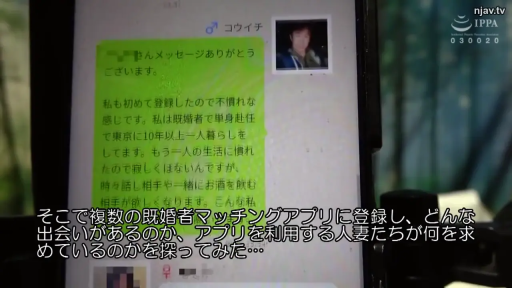 njav.tv
IPPA
030020
コウイチ
さんメッセージありがとう
ございます。
私も初めて登録したので不慣れな
感じです。私は既婚者で単身赴任
で東京に10年以上一人暮らしを
してます。もう一人の生活に慣れ
たので寂しくはないんですが、
時々話し相手や一緒にお酒を飲む
相手が欲しくなります。こんな私
そこで複数の既婚者マッチングアプリに登録し、どんな
出会いがあるのか、アプリを利用する人妻たちが何を求
めているのかを探ってみた…